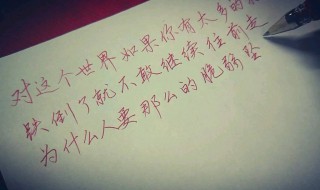 对这个世界如果你有太多的
跌倒了就不敢继续往前走
为什么人要那么的脆弱